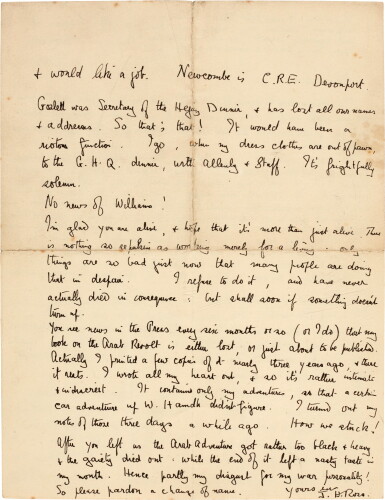 & would like a job. Newcombe is C.R.E. Devonport.
Goslett was Secretary of the Hejaz Dinner, & has lost all our names
& addresses. So that's that! It would have been a
riotous function. I go, when my dress clothes are out of pawn,
to the G.H.Q. dinner, with Allenby & Staff. It's frightfully
solemn.
No news of Williams!
I'm glad you are alive, & hope that it's more than just alive. There
is nothing so hopeless as working merely for a living: only
things are so bad just now that many people are doing
that in despair. I refuse to do it, and have never
actually died in consequence: but shall soon if something doesn't
turn up.
You see news in the Press every six months or so (or I do) that my
book on the Arab Revolt is either lost, or just about to be published.
Actually I printed a few copies of it nearly three years ago, & there
it rests. I wrote all my heart out, & so it's rather intimate
& indiscreet. It contains only my adventures, so that a certain
car adventure of W. Hamdh didn't figure. I turned out my
notes of those three days a while ago. How we stuck!
After you left us the Arab Adventure got rather too black & heavy
& the gaiety died out: while the end of it left a nasty taste in
my mouth. Hence partly my disgust for my war personality!
So please pardon a change of name.
Yours ever
J. H. Ross.